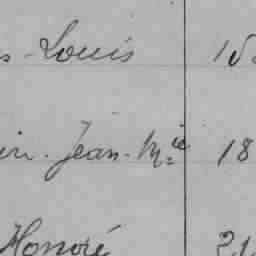 s - Louis 15
in. Jean-M.ie 18
Honoré 21